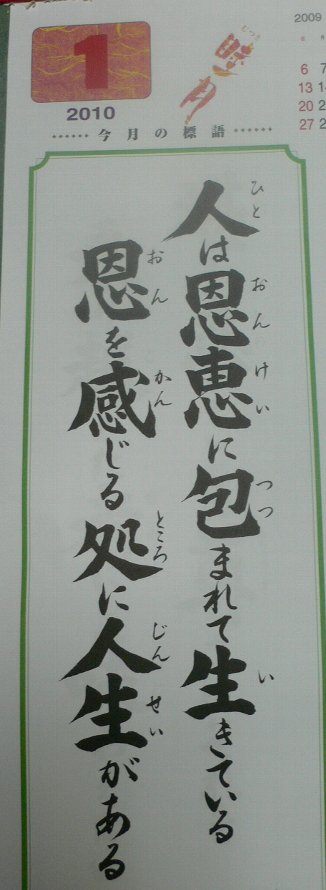 1
2010
睦月
むつき
2009
6 7
13 1
20 2
27 2
……今月の標語……
人は恩恵に包まれて生きている
ひと おんけい つつ い
恩を感じる処に人生がある
おん かん ところ じんせい